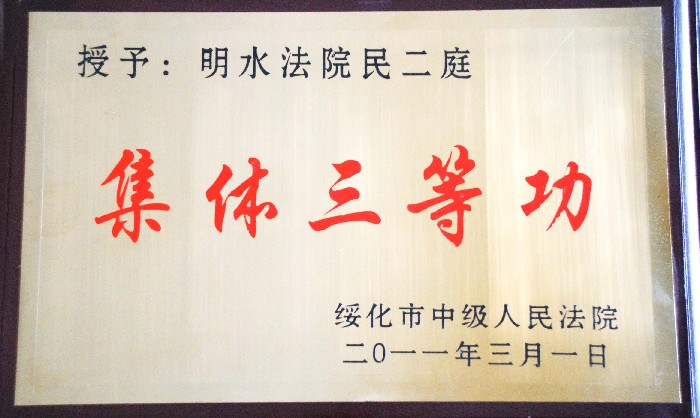 授予：明水法院民二庭
集体三等功
绥化市中级人民法院
二0一一年三月一日